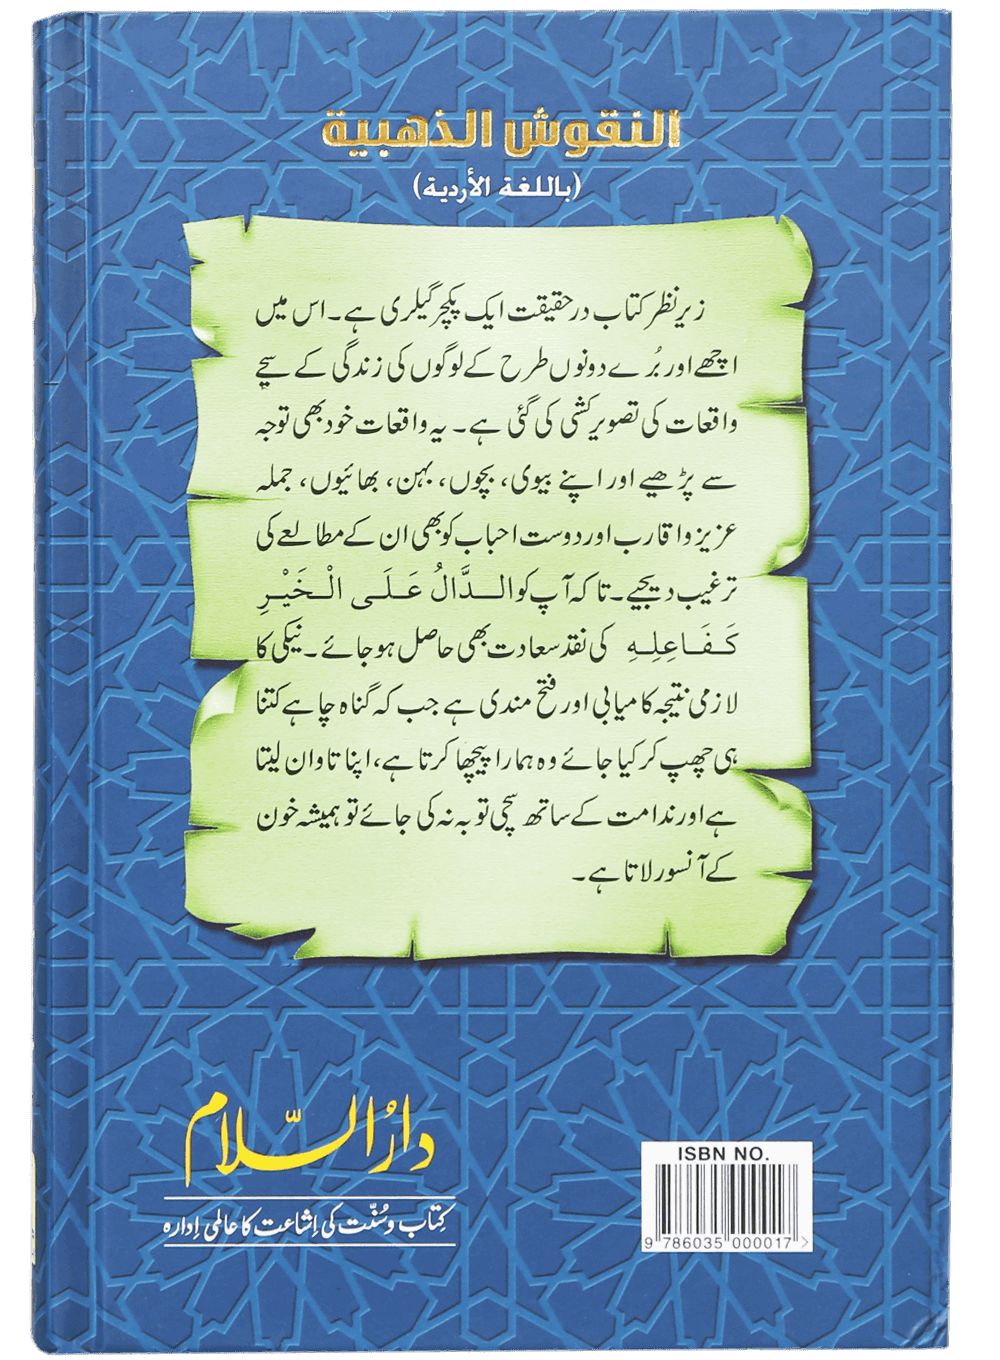 النقوش الذهبية
(باللغة الأردية)
زیرِ نظر کتاب درحقیقت ایک پکچر گیلری ہے۔ اس میں
اچھے اور بُرے دونوں طرح کے لوگوں کی زندگی کے سچے
واقعات کی تصویر کشی کی گئی ہے۔ یہ واقعات خود بھی توجہ
سے پڑھیے اور اپنے بیوی، بچوں، بہن، بھائیوں، جملہ
عزیز و اقارب اور دوست احباب کو بھی ان کے مطالعے کی
ترغیب دیجیے۔ تاکہ آپ کو الدَّالُ عَلَى الْخَيْرِ
كَفَاعِلِهِ کی نقد سعادت بھی حاصل ہو جائے۔ نیکی کا
لازمی نتیجہ کامیابی اور فتح مندی ہے جب کہ گناہ چاہے کتنا
ہی چھپ کر کیا جائے وہ ہمارا پیچھا کرتا ہے، اپنا تاوان لیتا
ہے اور ندامت کے ساتھ سچی توبہ نہ کی جائے تو ہمیشہ خون
کے آنسو رلاتا ہے۔
دارُالسّلام
کِتاب و سُنّت کی اِشاعت کا عالمی اِدارہ
ISBN NO.
9 786035 000017 >